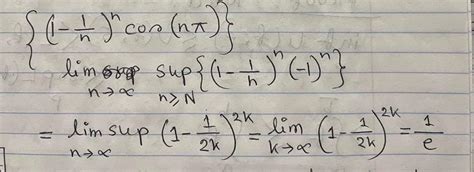 {(1-1/n)^n cos(nπ)}
lim n→∞ sup n≥N {(1-1/n)^n (-1)^n}
= lim sup n→∞ (1-1/2k)^2k = lim k→∞ (1-1/2k)^2k = 1/e